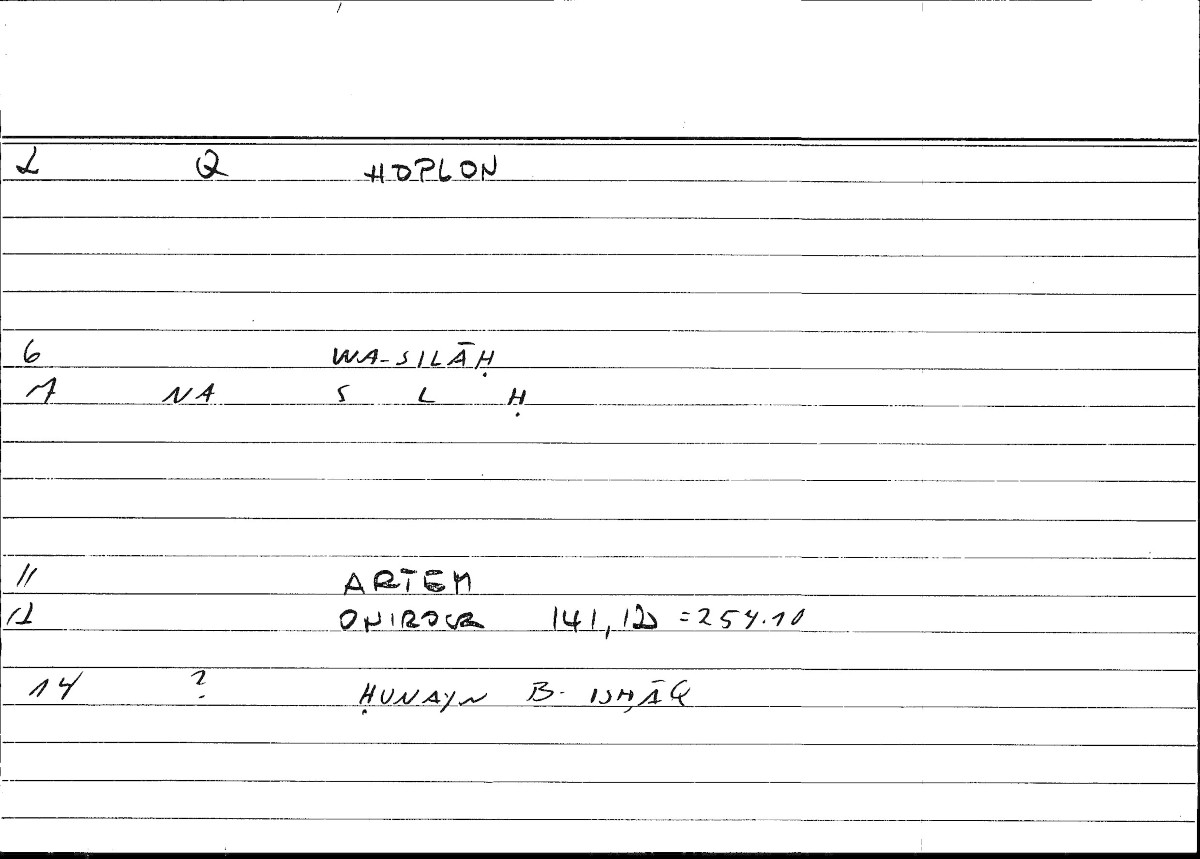 2 Q HOPLON
6 WA-SILĀḤ
7 NA S L Ḥ
11 ARTEM
12 ONIROCR 141,12 =254.10
14 ? ḤUNAYN B- ISḤĀQ